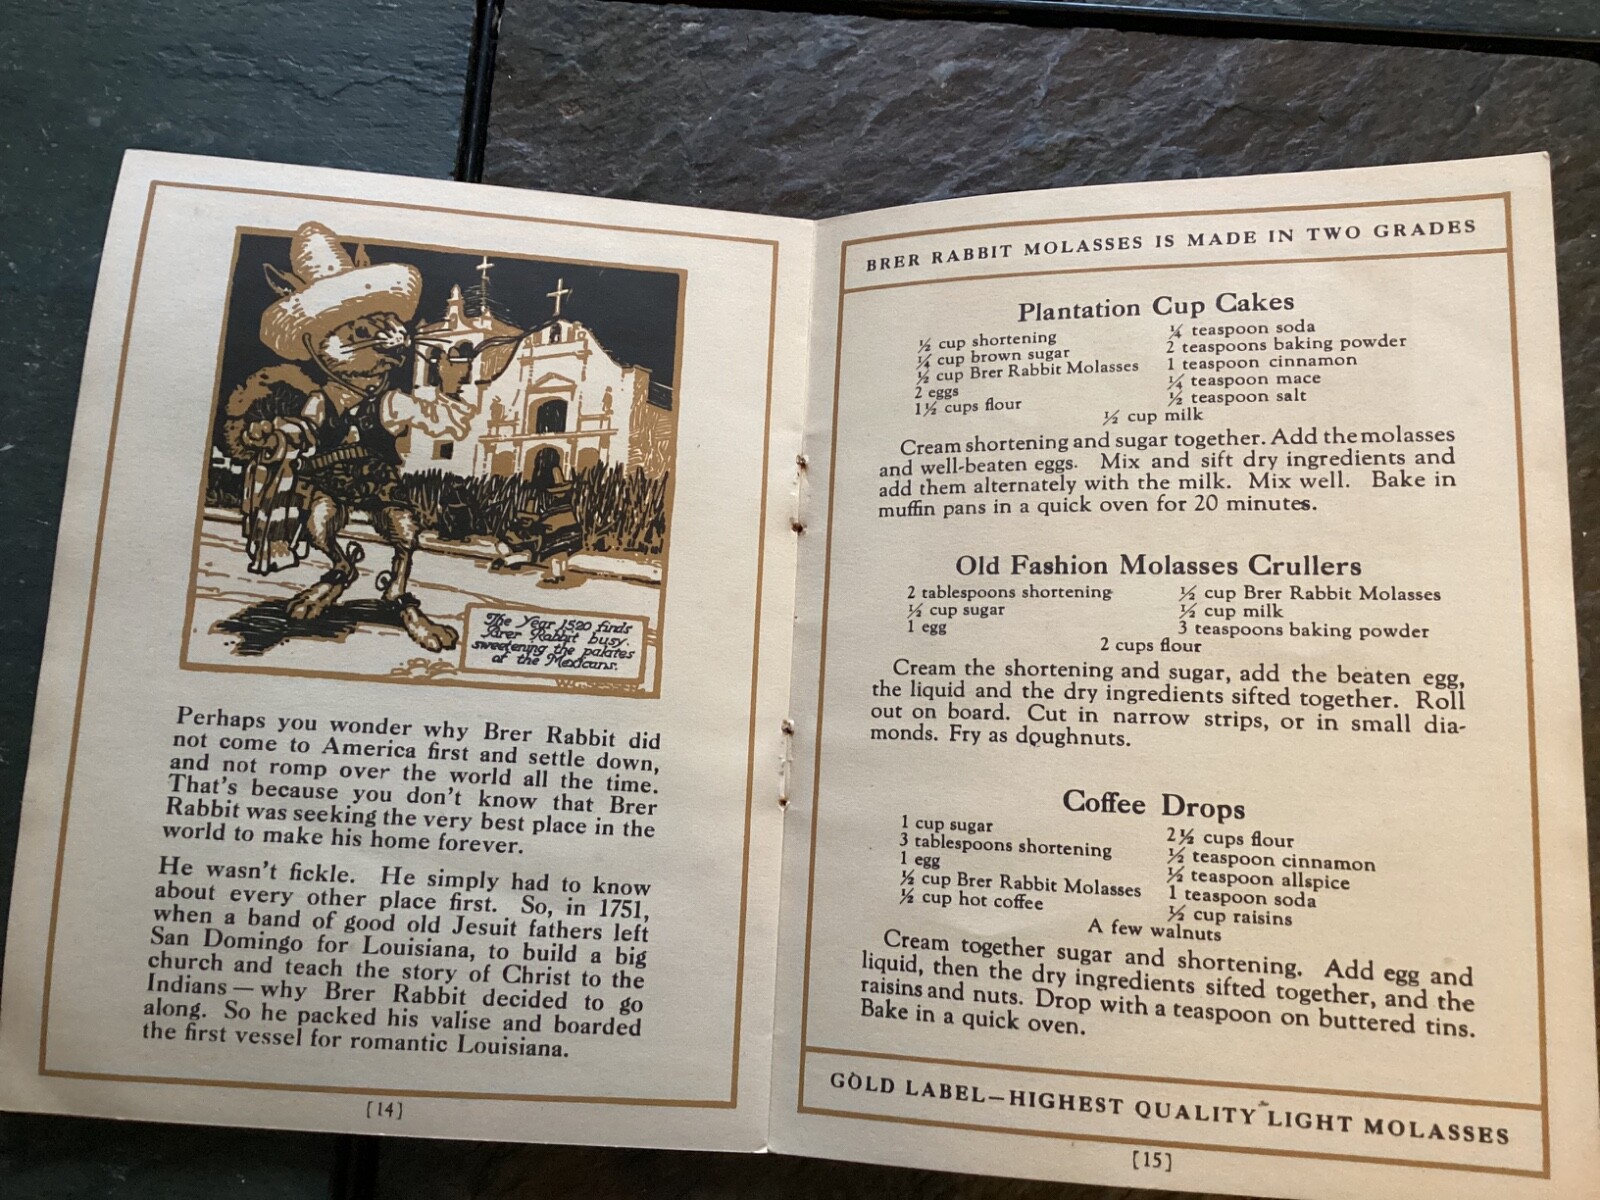 The Year 1520 finds
Brer Rabbit busy.
sweetening the palates
of the Mexicans.
Perhaps you wonder why Brer Rabbit did
not come to America first and settle down,
and not romp over the world all the time.
That's because you don't know that Brer
Rabbit was seeking the very best place in the
world to make his home forever.
He wasn't fickle. He simply had to know
about every other place first. So, in 1751,
when a band of good old Jesuit fathers left
San Domingo for Louisiana, to build a big
church and teach the story of Christ to the
Indians — why Brer Rabbit decided to go
along. So he packed his valise and boarded
the first vessel for romantic Louisiana.
[14]
BRER RABBIT MOLASSES IS MADE IN TWO GRADES
Plantation Cup Cakes
½ cup shortening
¼ cup brown sugar
½ cup Brer Rabbit Molasses
2 eggs
1½ cups flour
¼ teaspoon soda
2 teaspoons baking powder
1 teaspoon cinnamon
¼ teaspoon mace
½ teaspoon salt
½ cup milk
Cream shortening and sugar together. Add the molasses
and well-beaten eggs. Mix and sift dry ingredients and
add them alternately with the milk. Mix well. Bake in
muffin pans in a quick oven for 20 minutes.
Old Fashion Molasses Crullers
2 tablespoons shortening
½ cup sugar
1 egg
½ cup Brer Rabbit Molasses
½ cup milk
3 teaspoons baking powder
2 cups flour
Cream the shortening and sugar, add the beaten egg,
the liquid and the dry ingredients sifted together. Roll
out on board. Cut in narrow strips, or in small dia-
monds. Fry as doughnuts.
Coffee Drops
1 cup sugar
3 tablespoons shortening
1 egg
½ cup Brer Rabbit Molasses
½ cup hot coffee
2½ cups flour
½ teaspoon cinnamon
½ teaspoon allspice
1 teaspoon soda
½ cup raisins
A few walnuts
Cream together sugar and shortening. Add egg and
liquid, then the dry ingredients sifted together, and the
raisins and nuts. Drop with a teaspoon on buttered tins.
Bake in a quick oven.
GOLD LABEL—HIGHEST QUALITY LIGHT MOLASSES
[15]